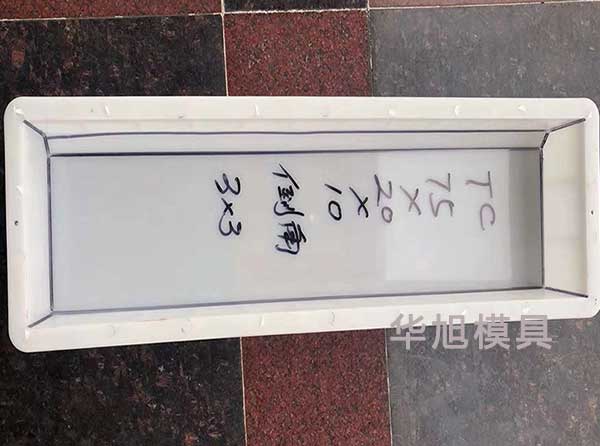 TC
75
X
20
X
10
倒角
3x3
华旭模具